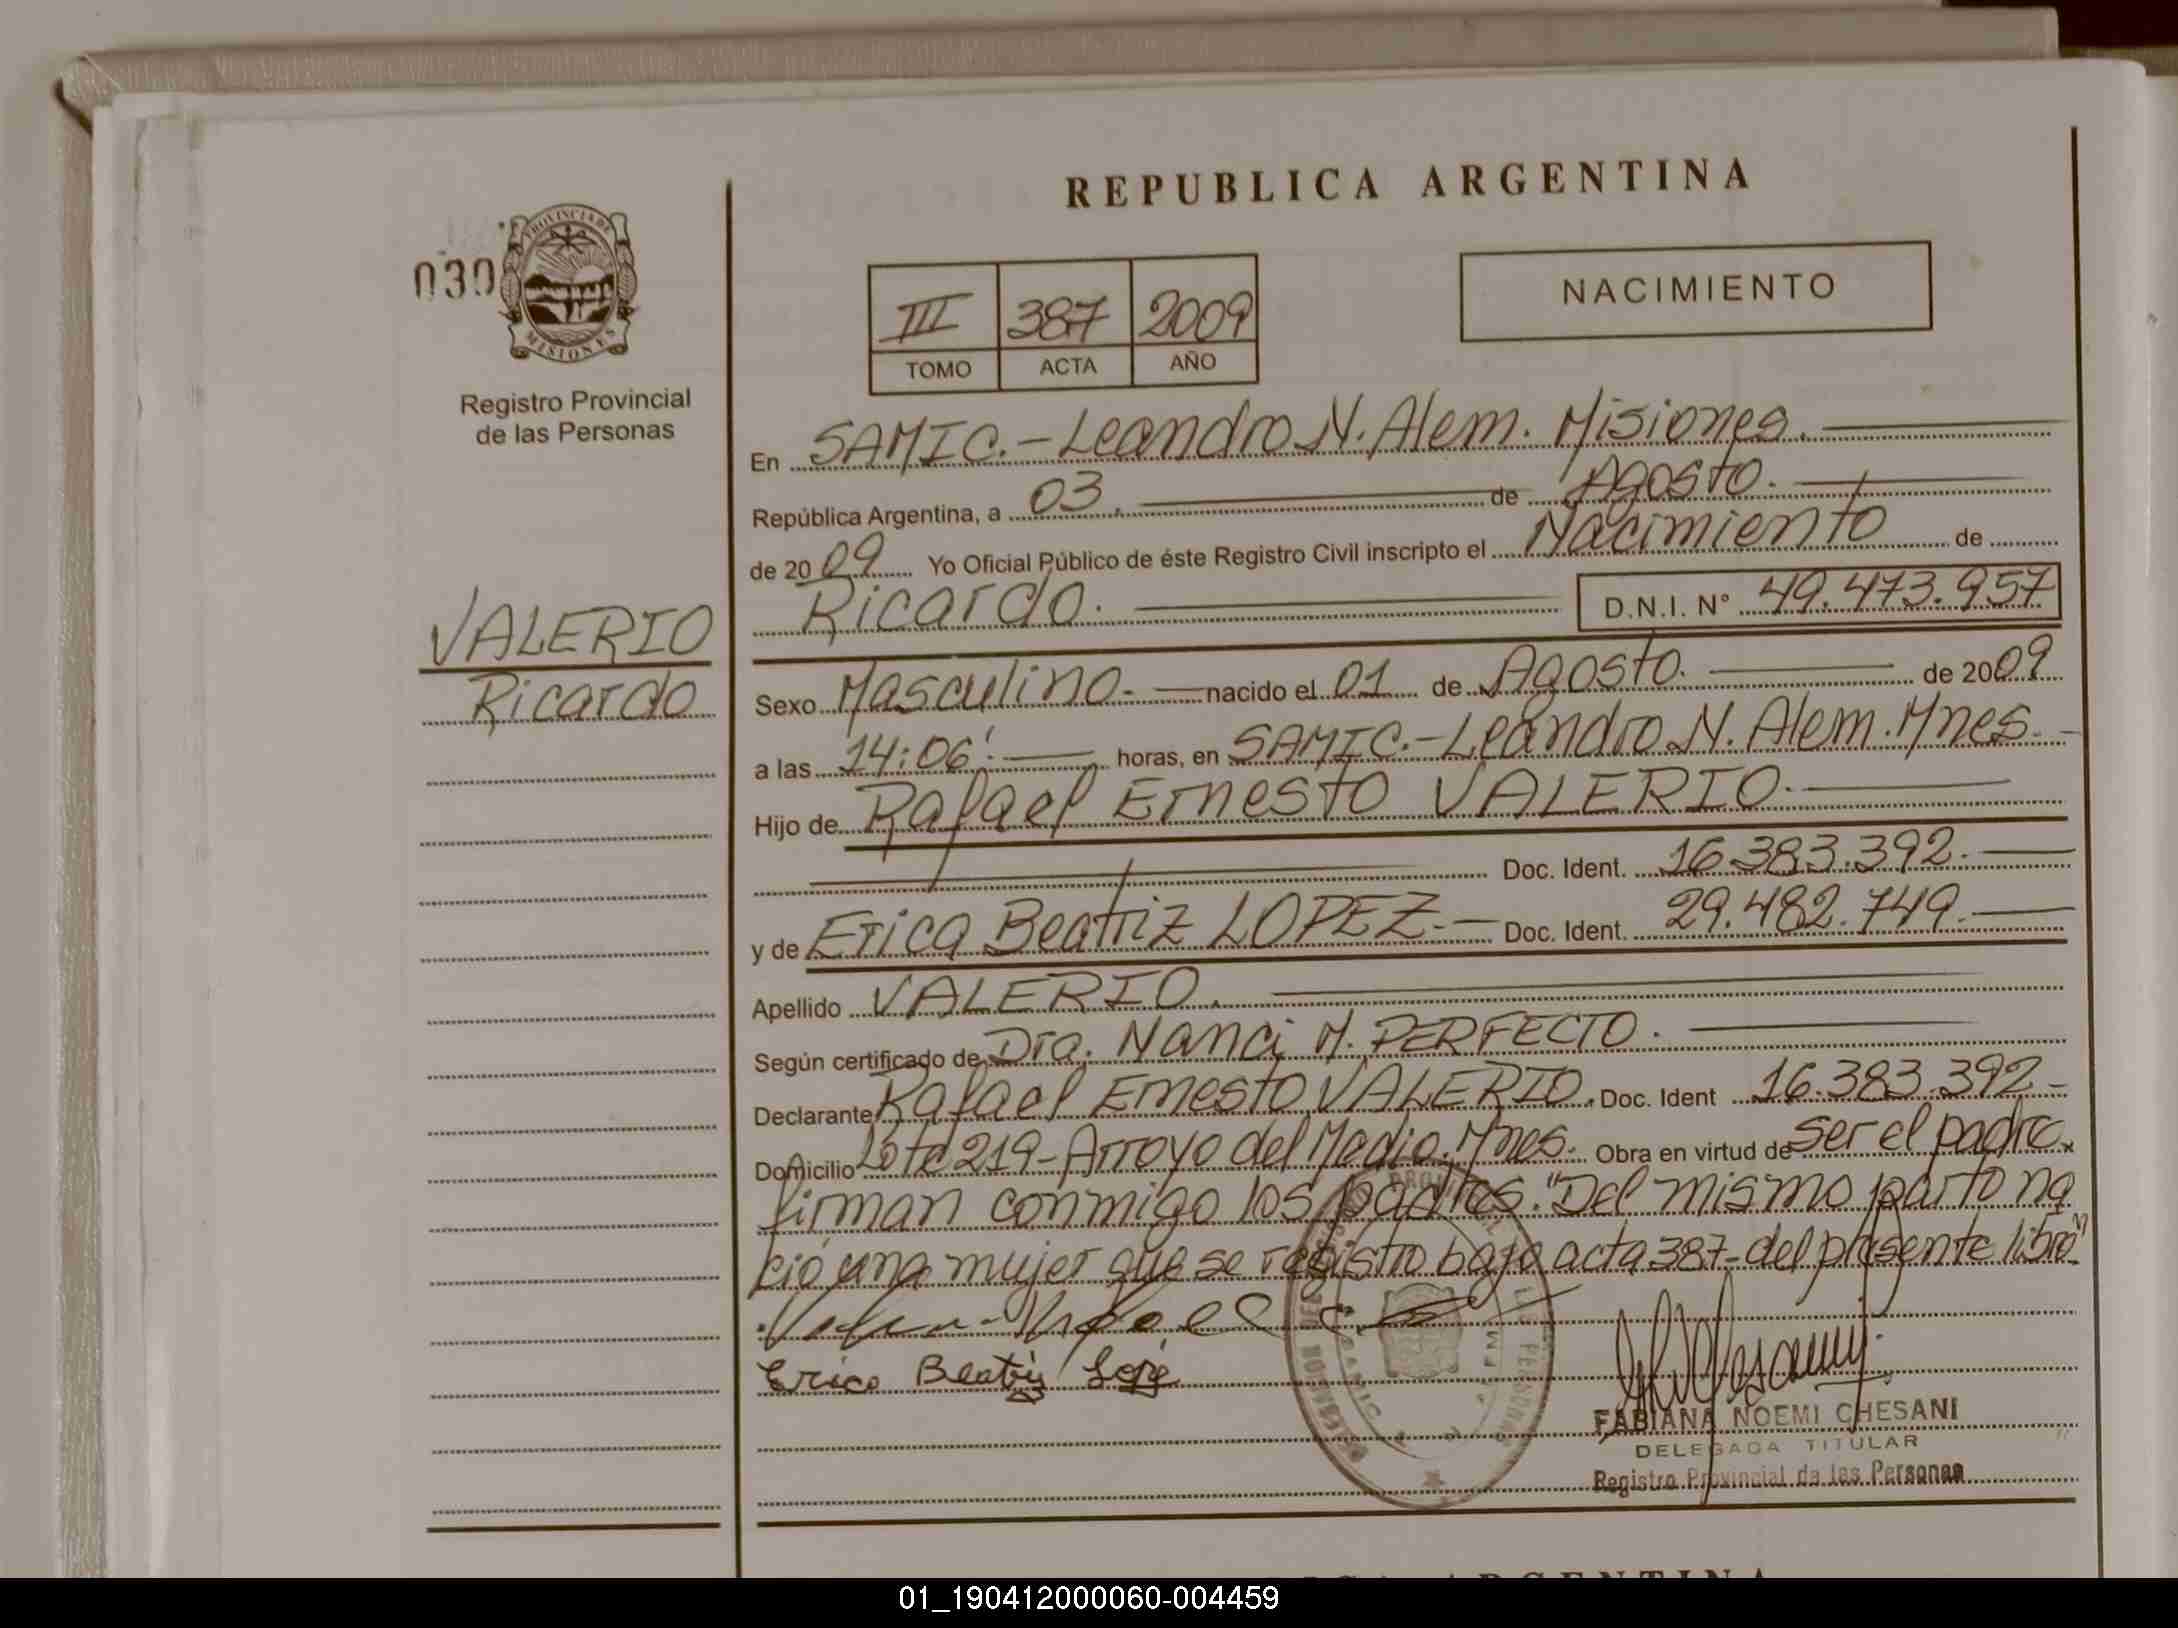 REPUBLICA ARGENTINA
030
PROVINCIA DE
MISIONES
Registro Provincial
de las Personas
III 387 2009
TOMO ACTA AÑO
NACIMIENTO
VALERIO
Ricardo
En SAMIC.-Leandro N. Alem. Misiones.
República Argentina, a 03. de Agosto.
de 2009 Yo Oficial Público de éste Registro Civil inscripto el Nacimiento de
Ricardo. D.N.I. N° 49.473.957
Sexo Masculino. nacido el 01 de Agosto. de 2009
a las 14:06'. horas, en SAMIC.-Leandro N. Alem. Mnes.
Hijo de Rafael Ernesto VALERIO.
Doc. Ident. 16.383.392.
y de Erica Beatriz LOPEZ.- Doc. Ident. 29.482.749.
Apellido VALERIO.
Según certificado de Dra. Nanci M. PERFECTO.
Declarante Rafael Ernesto VALERIO. Doc. Ident 16.383.392-
Domicilio Lote 219-Arroyo del Medio. Mnes. Obra en virtud de ser el padre.
firman conmigo los padres. "Del mismo parto na
ció una mujer que se registro bajo acta 387 del presente libro"
Erica Beatriz Lopez
FABIANA NOEMI CHESANI
DELEGADA TITULAR
Registro Provincial de las Personas
01_190412000060-004459